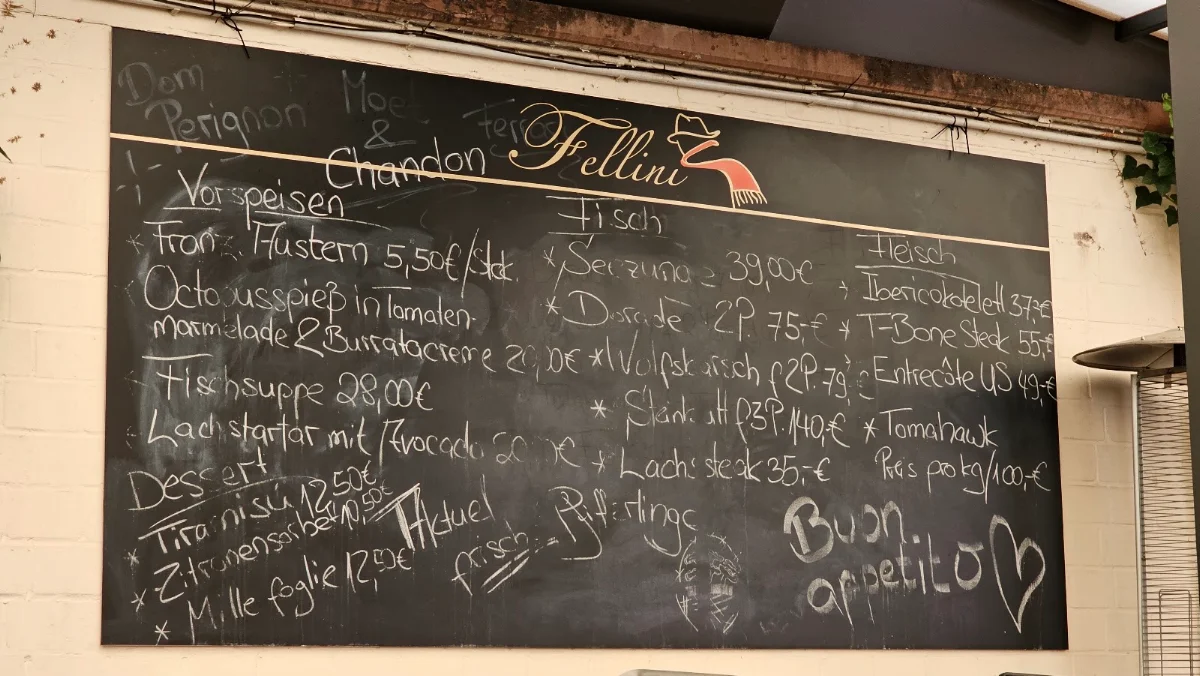 Dom
Perignon
Moet
&
Chandon
Fellini
Vorspeisen
* Austern 5,50€/Stck.
Octopusspieß in Tomaten-
marmelade & Burratacreme
Fischsuppe 28,00€
Lachstartar mit Avocado
Dessert
* Tiramisu 12,50€
* Zitronensorbet 10,50€
* Mille foglie 12,50€
Aktuel
frisch
Pfifferlinge
Fisch
* Seezunge 39,00€
* Dorade 2P. 75,-€
* Wolfsbarsch f 2P. 79,
* Steinbutt f 3P. 140,-€
* Lachssteak 35,-€
Fleisch
Ibericokotelett
* T-Bone Steak 55,-€
Entrecôte US 49,-€
* Tomahawk
Preis pro kg/100,-€
Buon
appetito